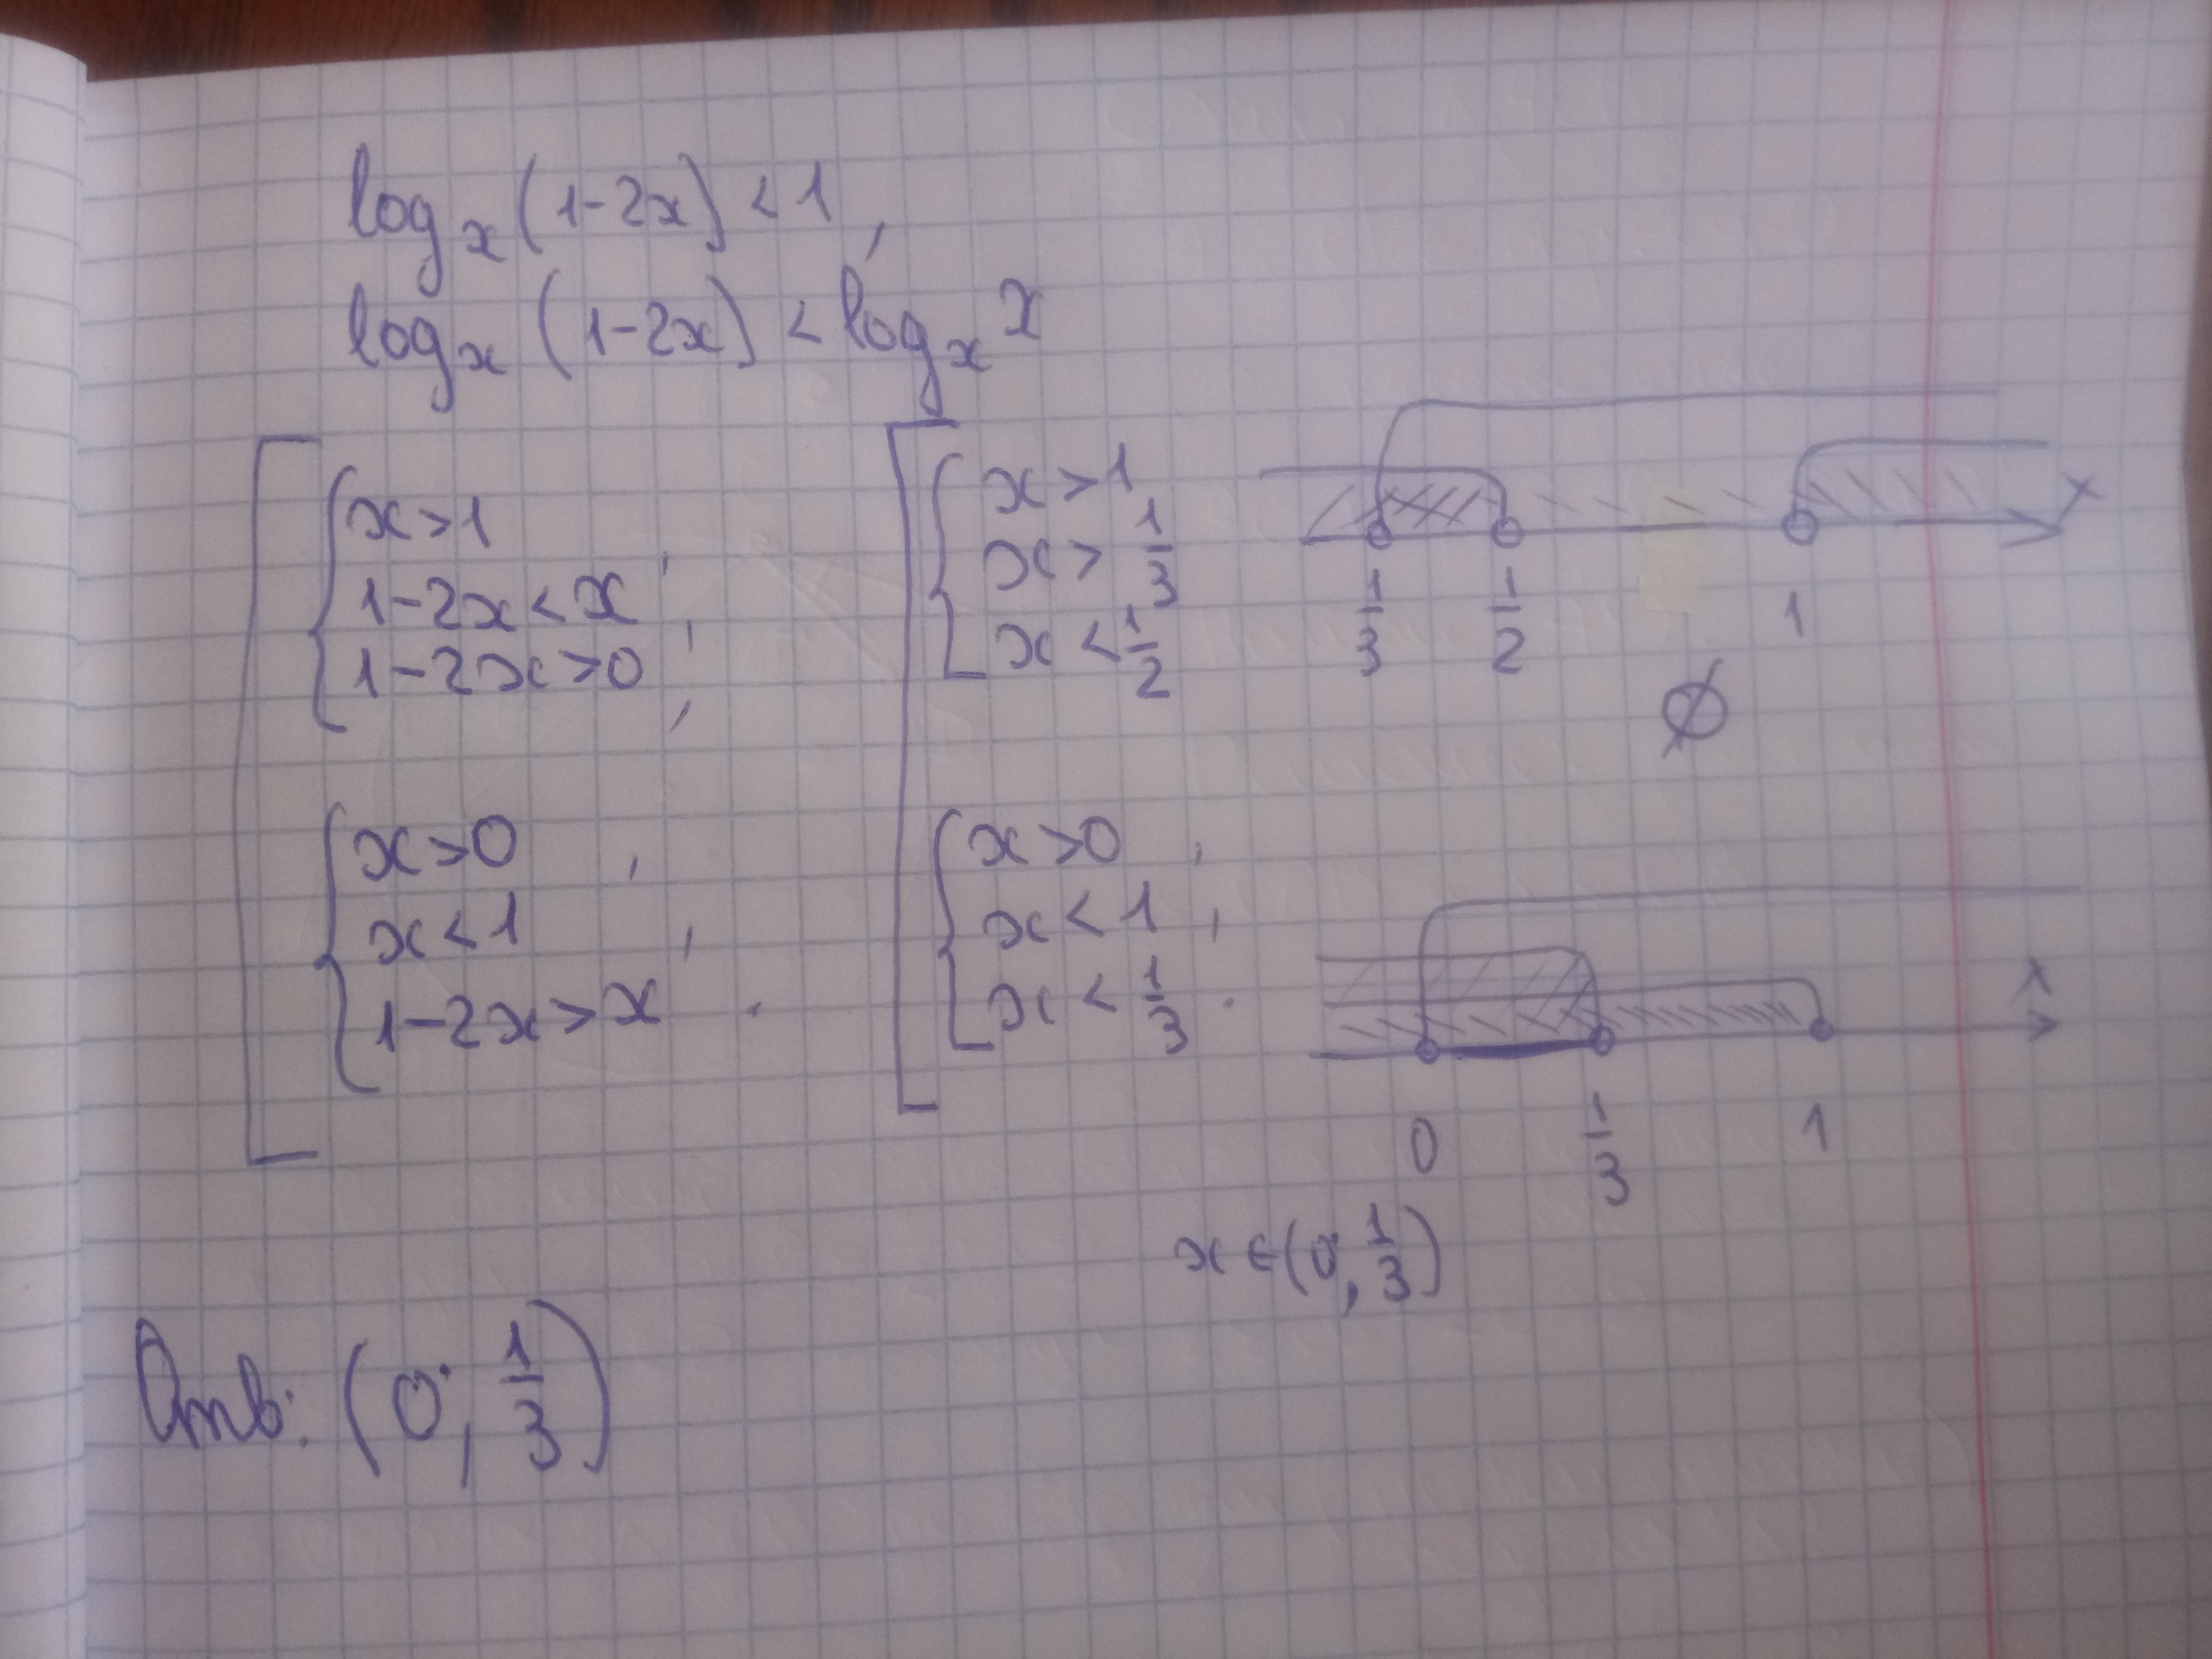 log_x (1-2x) < 1 ,
log_x (1-2x) < log_x x
x > 1 ,
1-2x < x ,
1-2x > 0 ,
x > 0 ,
x < 1 ,
1-2x > x .
x > 1
x > 1/3
x < 1/2
x > 0 ,
x < 1 ,
x < 1/3 .
x
1/3 1/2 1
∅
x
0 1/3 1
x ∈ (0; 1/3)
Отв: (0; 1/3)